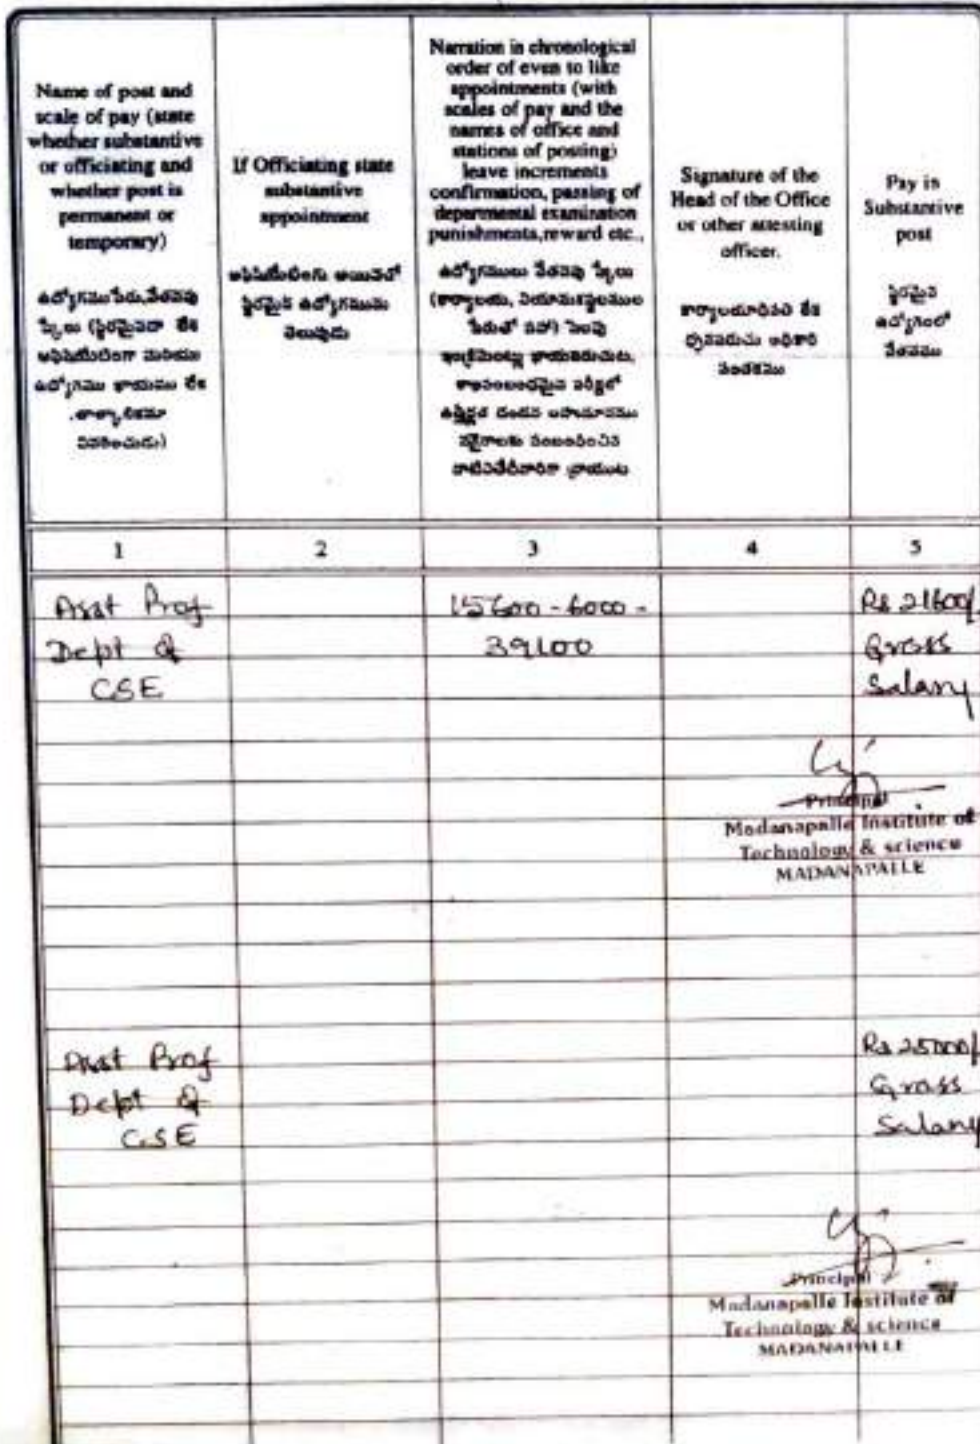 Name of post and
scale of pay (state
whether substantive
or officiating and
whether post is
permanent or
temporary)
ఉద్యోగము పేరు,వేతనపు
స్కేలు (స్థిరమైనదా లేక
ఉద్యోగము ఖాయము లేక
వివరించుడు)
If Officiating state
substantive
appointment
స్థిరమైన ఉద్యోగమును
తెలుపుడు
Narration in chronological
order of even to like
appointments (with
scales of pay and the
names of office and
stations of posting)
leave increments
confirmation, passing of
deparmental examination
punishments,reward etc.,
ఉద్యోగములు వేతనపు స్కేలు
పేరుతో సహా) సెలవు
Signature of the
Head of the Office
or other attesting
officer.
సంతకము
Pay in
Substantive
post
స్థిరమైన
ఉద్యోగంలో
వేతనము
1 2 3 4 5
Asst Prof 15600-6000- Rs 21600/
Dept of 39100 Gross
CSE Salary
Principal
Madanapalle Institute of
Technology & science
MADANAPALLE
Asst Prof Rs 25000/
Dept of Gross
CSE Salary
Principal
Madanapalle Institute of
Technology & science
MADANAPALLE